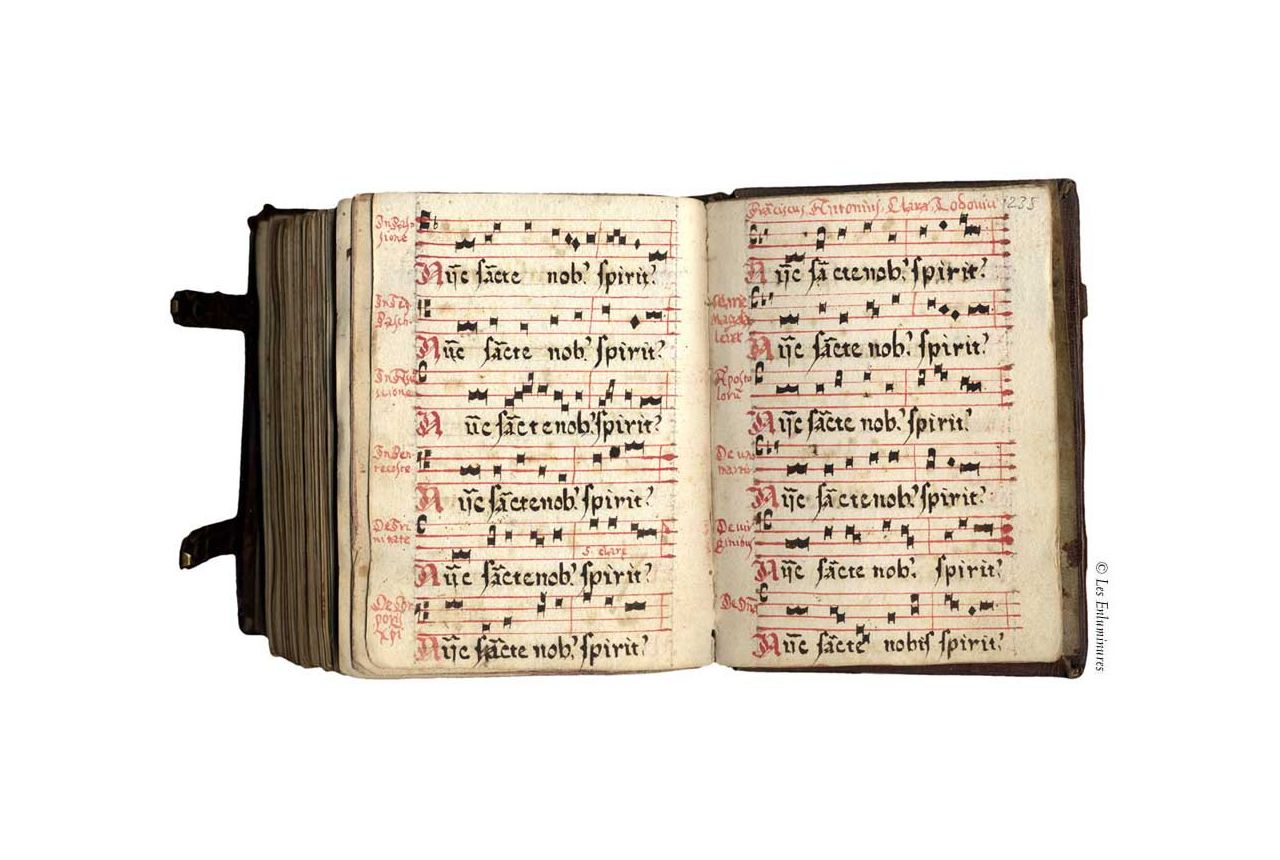 In Pas-
sione
Nūc sācte nob' spirit'
In Tēp
Pasch
Nūc sācte nob' spirit'
Nūc sācte nob' spirit'
In Pen-
tecoste
Nūc sācte nob' spirit'
De Tri
nitate
S. Clare
Nūc sācte nob' spirit'
De Cor
poris
Xpi
Nūc sācte nob' spirit'
Frāciscus Antonius Clara Lodovic' 235
Nūc sācte nob' spirit'
Marie
Magda
lene
Nūc sācte nob' spirit'
Aposto
lorū
Nūc sācte nob' spirit'
De uno
Nūc sācte nob' spirit'
De uir
ginibus
Nūc sācte nob' spirit'
Nūc sācte nobis spirit'
© Les Enluminures